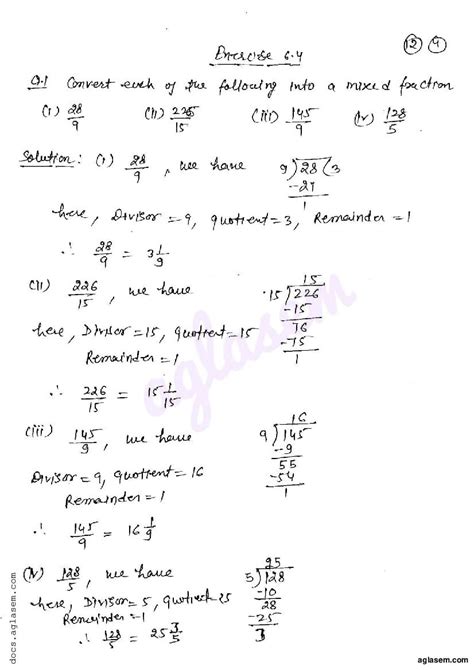 12 4
Exercise 6.4
Q.1 Convert each of the following into a mixed fraction
(i) 28/9 (ii) 226/15 (iii) 145/9 (iv) 128/5
Solution: (i) 28/9, we have 9)28(3
-27
1
here, Divisor = 9, quotient = 3, Remainder = 1
∴ 28/9 = 3 1/9
(ii) 226/15, we have
15
15)226
-15
76
-75
1
here, Divisor = 15, quotient = 15
Remainder = 1
∴ 226/15 = 15 1/15
(iii) 145/9, we have
16
9)145
-9
55
-54
1
Divisor = 9, quotient = 16
Remainder = 1
∴ 145/9 = 16 1/9
(iv) 128/5, we have
25
5)128
-10
28
-25
3
here, Divisor = 5, quotient 25
Remainder = 1
∴ 128/5 = 25 3/5
aglasem
docs.aglasem.com
aglasem.com